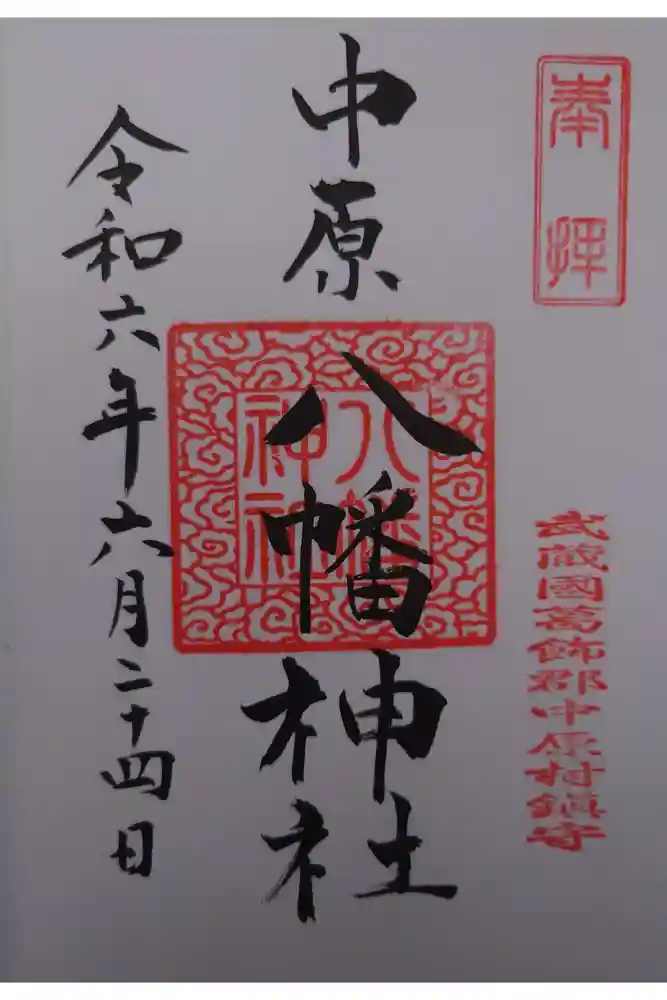 奉拝
武蔵國葛飾郡中原村鎮守
中原八幡神社
八幡神社
令和六年六月二十四日